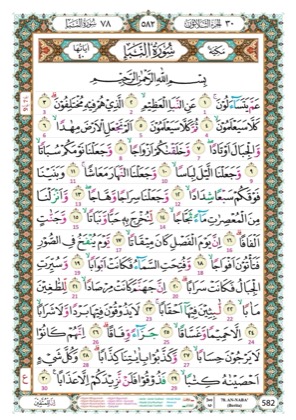 ٣٠ الجزء الثلاثون ٥٨٢ سورة النبأ ٧٨
مكية سورة النبأ آياتها ٤٠
بسم الله الرحمن الرحيم
عم يتساءلون ١ عن النبإ العظيم ٢ الذي هم فيه مختلفون ٣
كلا سيعلمون ٤ ثم كلا سيعلمون ٥ ألم نجعل الأرض مهادا ٦
والجبال أوتادا ٧ وخلقناكم أزواجا ٨ وجعلنا نومكم سباتا ٩
وجعلنا الليل لباسا ١٠ وجعلنا النهار معاشا ١١ وبنينا
فوقكم سبعا شدادا ١٢ وجعلنا سراجا وهاجا ١٣ وأنزلنا
من المعصرات ماء ثجاجا ١٤ لنخرج به حبا ونباتا ١٥ وجنات
ألفافا ١٦ إن يوم الفصل كان ميقاتا ١٧ يوم ينفخ في الصور
فتأتون أفواجا ١٨ وفتحت السماء فكانت أبوابا ١٩ وسيرت
الجبال فكانت سرابا ٢٠ إن جهنم كانت مرصادا ٢١ للطاغين
مآبا ٢٢ لابثين فيها أحقابا ٢٣ لا يذوقون فيها بردا ولا شرابا
٢٤ إلا حميما وغساقا ٢٥ جزاء وفاقا ٢٦ إنهم كانوا
لا يرجون حسابا ٢٧ وكذبوا بآياتنا كذابا ٢٨ وكل شيء
أحصيناه كتابا ٢٩ فذوقوا فلن نزيدكم إلا عذابا ٣٠
582